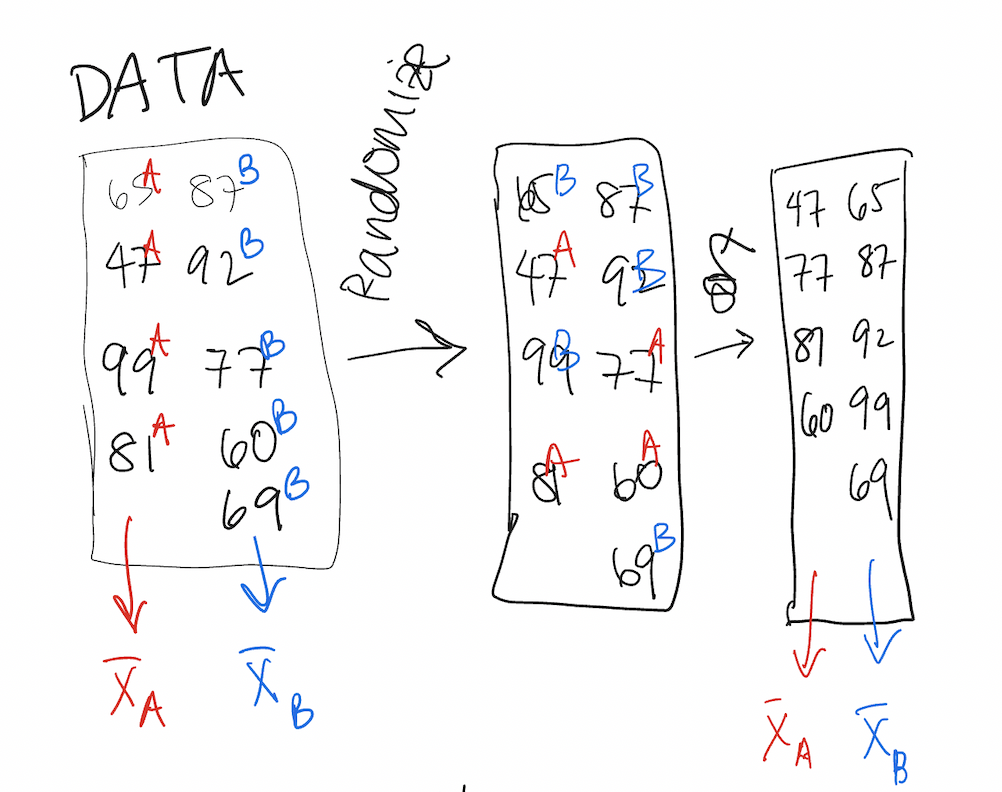 DATA
Randomize
65A 87B
47A 92B
99A 77B
81A 60B
69B
X̄A X̄B
65B 87B
47A 92B
99B 77A
81A 60A
69B
47 65
77 87
81 92
60 99
69
X̄A X̄B